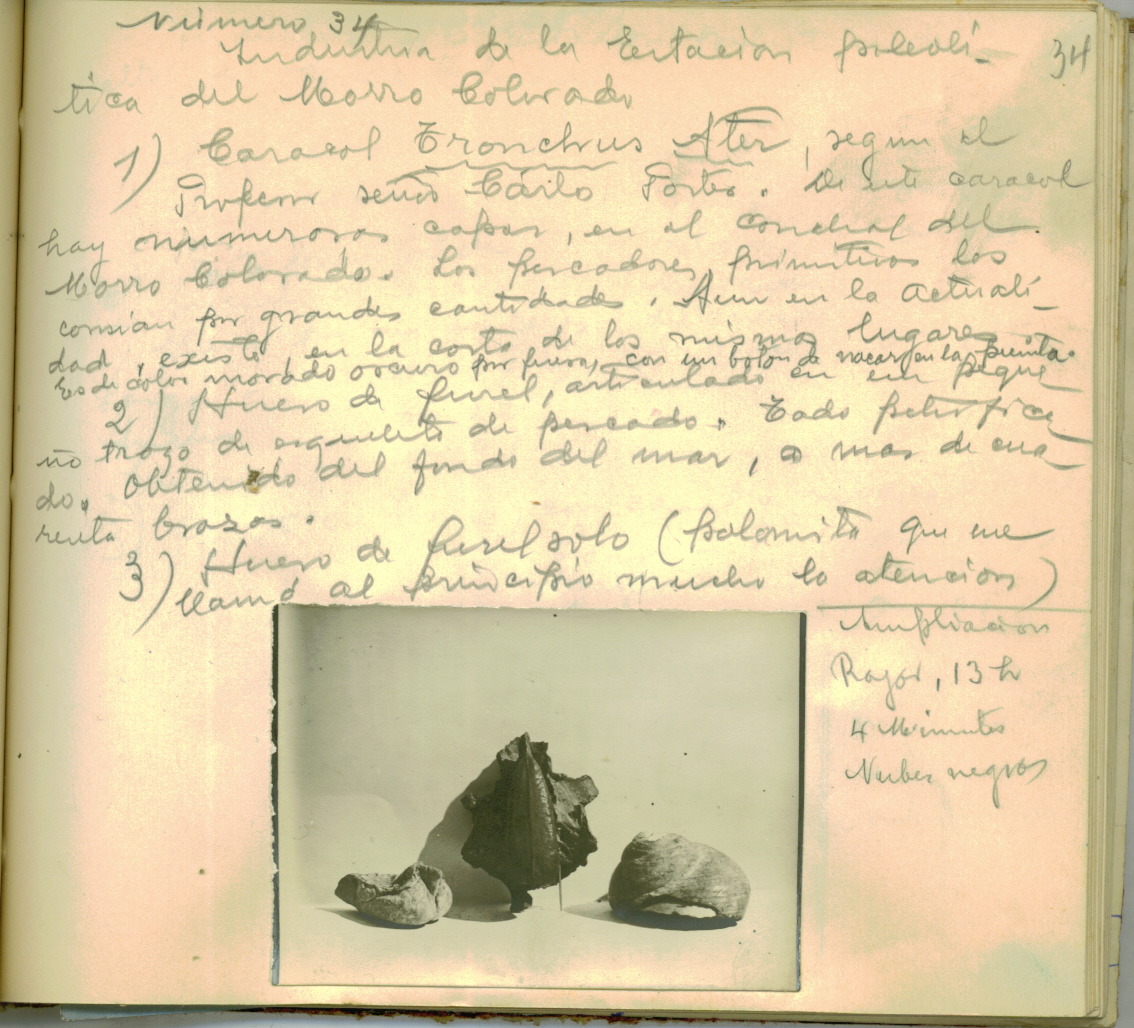 Número 34
34
Industria de la Estacion paleoli-
tica del Morro Colorado
1) Caracol Tronchus Ater, segun el
Profesor señor Cárlo Porter. De este caracol
hay numerosas capas, en el conchal del
Morro Colorado. Los pescadores primitivos los
comian por grandes cantidades. Aun en la actuali-
dad, existe, en la costa de los mismos lugares.
Es de color morado oscuro por fuera, con un boton de nacar en la punta.
2) Hueso de jurel, articulado en un peque
ño trozo de esqueleto de pescado. Todo petrifica
do. Obtenido del fondo del mar, a mas de cua
renta brazas.
3) Hueso de jurel solo (palomita que me
llamó al principio mucho la atencion)
Ampliacion
13 h
4 Minutos
Nubes negras